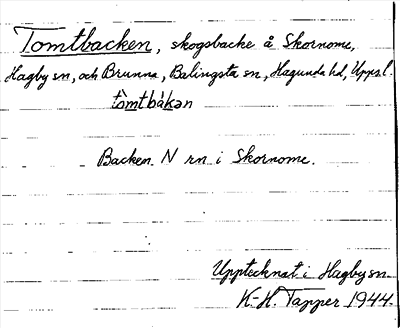 Tomtbacken, skogsbacke å Skornome,
Hagby sn, och Brunna, Balingsta sn, Hagunda hd, Uppsl.
tòmtbàkən
Backen N rn i Skornome.
Upptecknat i Hagby sn
K-H. Tapper 1944